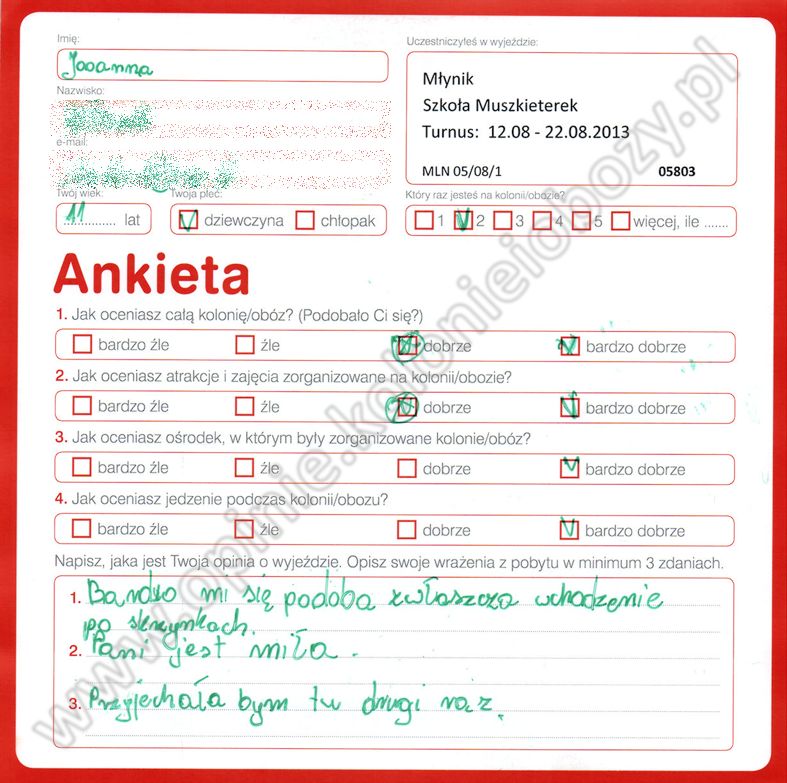 Imię:
Uczestniczyłeś w wyjeździe:
Joanna
Młynik
Szkoła Muszkieterek
Turnus: 12.08 - 22.08.2013
MLN 05/08/1 05803
Nazwisko:
e-mail:
Twój wiek:
Twoja płeć:
Który raz jesteś na kolonii/obozie?
11 lat
dziewczyna chłopak
1 2 3 4 5 więcej, ile .......
Ankieta
1. Jak oceniasz całą kolonię/obóz? (Podobało Ci się?)
bardzo źle źle dobrze bardzo dobrze
2. Jak oceniasz atrakcje i zajęcia zorganizowane na kolonii/obozie?
bardzo źle źle dobrze bardzo dobrze
3. Jak oceniasz ośrodek, w którym były zorganizowane kolonie/obóz?
bardzo źle źle dobrze bardzo dobrze
4. Jak oceniasz jedzenie podczas kolonii/obozu?
bardzo źle źle dobrze bardzo dobrze
Napisz, jaka jest Twoja opinia o wyjeździe. Opisz swoje wrażenia z pobytu w minimum 3 zdaniach.
1. Bardzo mi się podoba zwłaszcza wchodzenie
po skrzynkach.
2. Pani jest miła.
3. Przyjechała bym tu drugi raz.
www.opinie.kolonieiobozy.pl